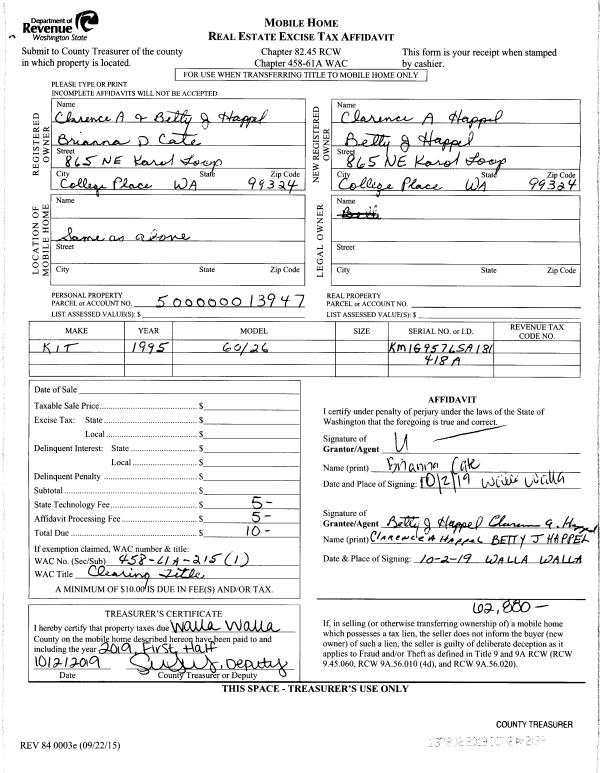 Department of
Revenue
Washington State
MOBILE HOME
REAL ESTATE EXCISE TAX AFFIDAVIT
Submit to County Treasurer of the county
in which property is located.
Chapter 82.45 RCW
Chapter 458-61A WAC
This form is your receipt when stamped
by cashier.
FOR USE WHEN TRANSFERRING TITLE TO MOBILE HOME ONLY
PLEASE TYPE OR PRINT
INCOMPLETE AFFIDAVITS WILL NOT BE ACCEPTED
REGISTERED OWNER
Name
Clarence A & Betty J Happel
Brianna D Cate
Street
865 NE Karol Loop
City State Zip Code
College Place WA 99324
NEW REGISTERED OWNER
Name
Clarence A Happel
Betty J Happel
Street
865 NE Karol Loop
City State Zip Code
College Place WA 99324
LOCATION OF MOBILE HOME
Name
Same as above
Street
City State Zip Code
LEGAL OWNER
Name
Street
City State Zip Code
PERSONAL PROPERTY
PARCEL or ACCOUNT NO. 500000013947
LIST ASSESSED VALUE(S): $
REAL PROPERTY
PARCEL or ACCOUNT NO.
LIST ASSESSED VALUE(S): $
MAKE YEAR MODEL SIZE SERIAL NO. or I.D. REVENUE TAX CODE NO.
KIT 1995 60/26 KM16957LSA181
418A
Date of Sale
Taxable Sale Price $
Excise Tax: State $
Local $
Delinquent Interest: State $
Local $
Delinquent Penalty $
Subtotal $
State Technology Fee $ 5-
Affidavit Processing Fee $ 5-
Total Due $ 10-
If exemption claimed, WAC number & title:
WAC No. (Sec/Sub) 458-61A-215(1)
WAC Title Clearing Title
A MINIMUM OF $10.00 IS DUE IN FEE(S) AND/OR TAX.
AFFIDAVIT
I certify under penalty of perjury under the laws of the State of
Washington that the foregoing is true and correct.
Signature of
Grantor/Agent
Name (print) Brianna Cate
Date and Place of Signing: 10/2/19 Walla Walla
Signature of
Grantee/Agent Betty J Happel Clarence A. Happel
Name (print) CLARENCE A HAPPEL BETTY J HAPPEL
Date & Place of Signing: 10-2-19 WALLA WALLA
TREASURER'S CERTIFICATE
I hereby certify that property taxes due Walla Walla
County on the mobile home described hereon have been paid to and
including the year 2019, First Half
10/2/2019 Deputy
Date County Treasurer or Deputy
62,880-
If, in selling (or otherwise transferring ownership of) a mobile home
which possesses a tax lien, the seller does not inform the buyer (new
owner) of such a lien, the seller is guilty of deliberate deception as it
applies to Fraud and/or Theft as defined in Title 9 and 9A RCW (RCW
9.45.060, RCW 9A.56.010 (4d), and RCW 9A.56.020).
THIS SPACE - TREASURER'S USE ONLY
COUNTY TREASURER
REV 84 0003e (09/22/15)